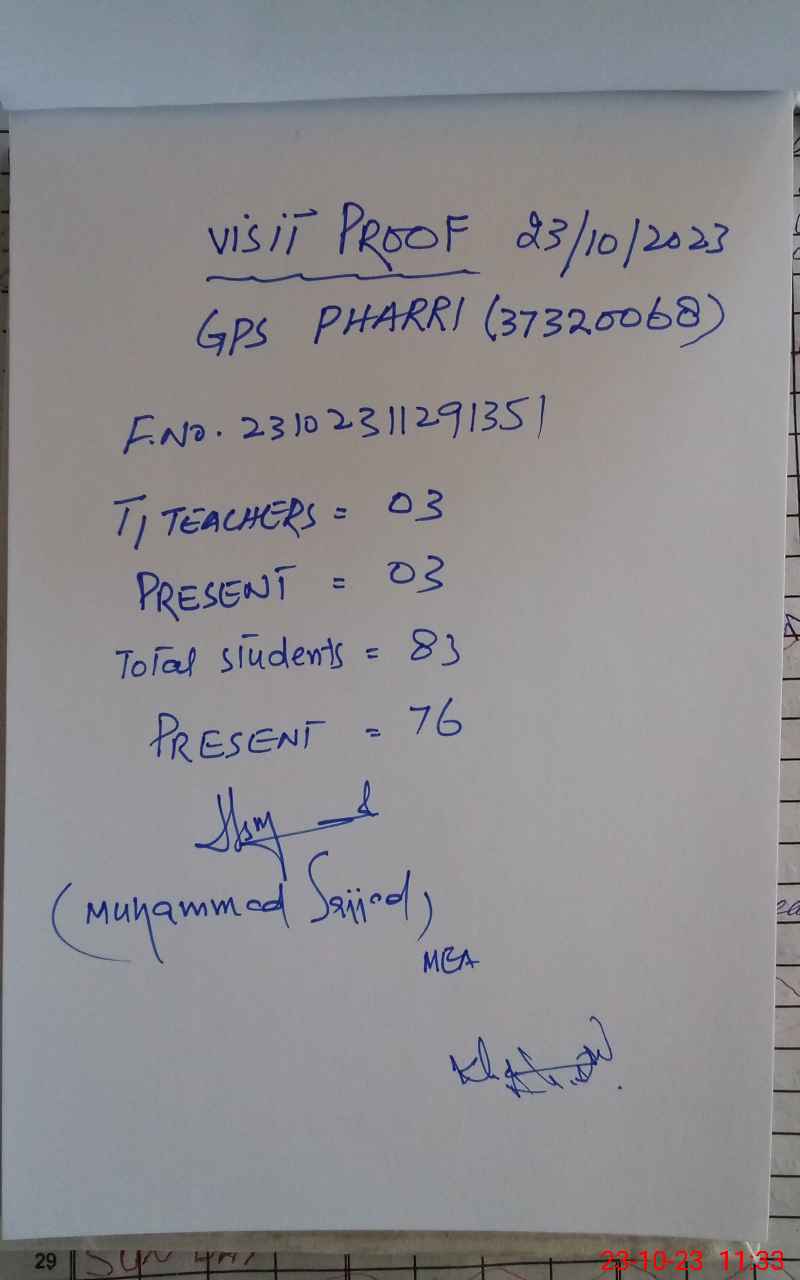 VISIT PROOF 23/10/2023
GPS PHARRI (37320068)
F.No. 23102311291351
T/TEACHERS = 03
PRESENT = 03
Total students = 83
PRESENT = 76
(Muhammad Sajjad)
MEA
29 SUNDAY
23-10-23 11:33